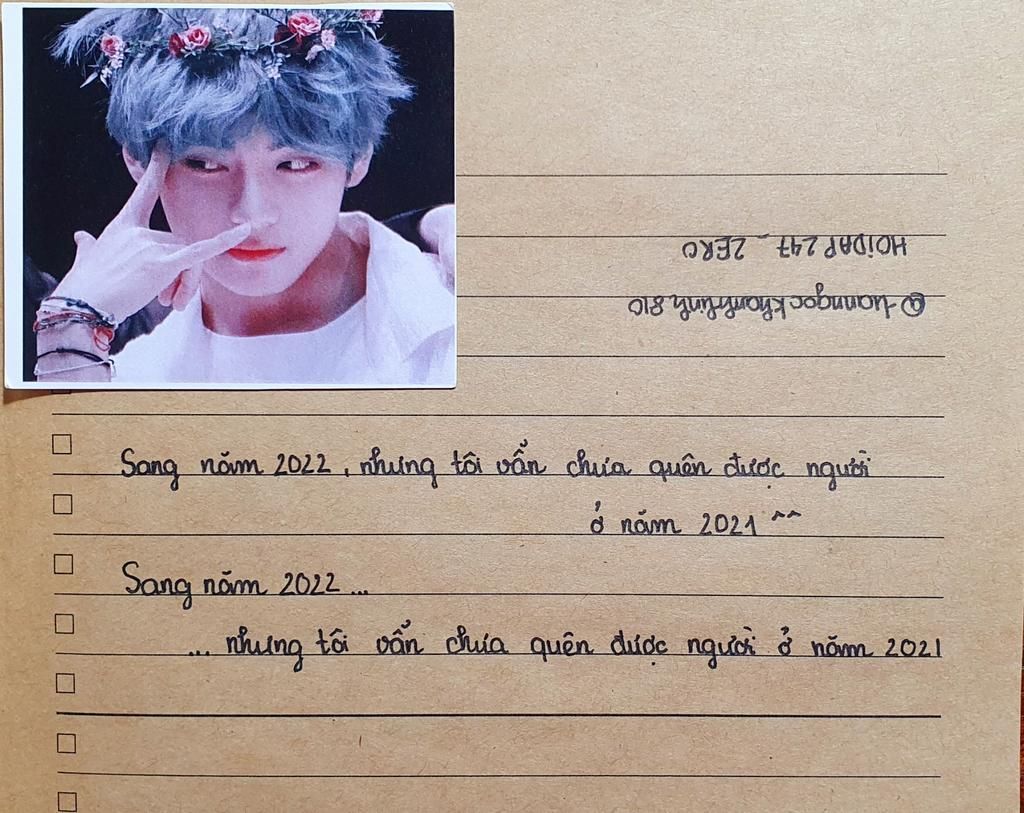 HOIDAP 247 _ ZERO
@tranngockhanhlinh810
Sang năm 2022, nhưng tôi vẫn chưa quên được người
ở năm 2021 ^^
Sang năm 2022...
... nhưng tôi vẫn chưa quên được người ở năm 2021